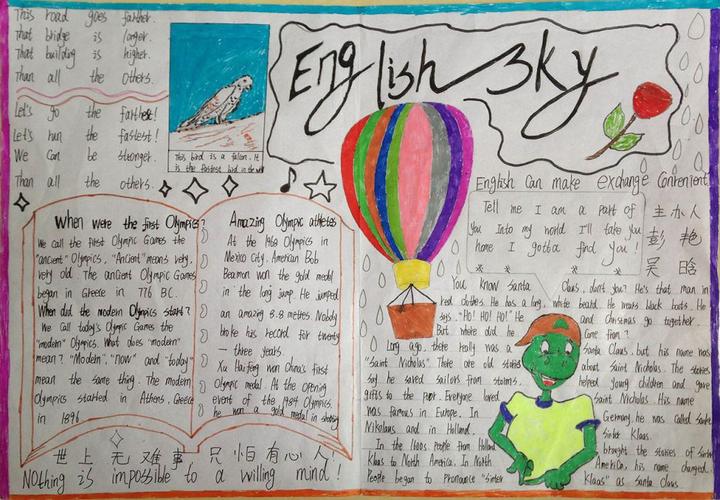 This road goes farther.
That bridge is longer.
That building is higher.
Than all the others.
Let's go the farthest!
Let's run the fastest!
We can be stronger.
Than all the others.
This bird is a falcon. It
is the fastest bird in the
English Sky
English can make exchange convenient
Tell me I am a part of
you Into my world I'll take you
home I gotta find you!
主办人
彭艳
吴晗
When were the first Olympics?
We call the first Olympic Games the
"ancient" Olympics. "Ancient" means very,
very old. The ancient Olympic Games
began in Greece in 776 BC.
When did the modern Olympics start?
We call today's Olympic Games the
"modern" Olympics. What does "modern"
mean? "Modern", "now" and "today"
mean the same thing. The modern
Olympics started in Athens, Greece
in 1896
Amazing Olympic athletes
At the 1968 Olympics in
Mexico City, American Bob
Beamon won the gold medal
in the long jump. He jumped
an amazing 8.8 metres. Nobody
broke his record for twenty
— three years.
Xu Haifeng won China's first
Olympic medal. At the opening
event of the 1984 Olympics.
he won a gold medal in
世上无难事 只怕有心人!
Nothing is impossible to a willing mind!
You know Santa Claus, don't you? He's that man in
red clothes. He has a long, white beard. He wears black boots. He
says, "Ho! Ho! Ho!" He and Christmas go together.
But where did he come from?
Long ago, there really was a Santa Claus, but his name was
"Saint Nicholas". There are old stories about Saint Nicholas. The stories
say he saved sailors from storms, helped young children and gave
gifts to the poor. Everyone loved Saint Nicholas. His name
was famous in Europe. In Germany, he was called Sante
Nikolaus and in Holland, Sinter Klaas.
In the 1600s people from Holland brought the stories of Sinter
Klaas to North America. In North America, his name changed.
People began to pronounce "Sinter Klaas" as santa claus